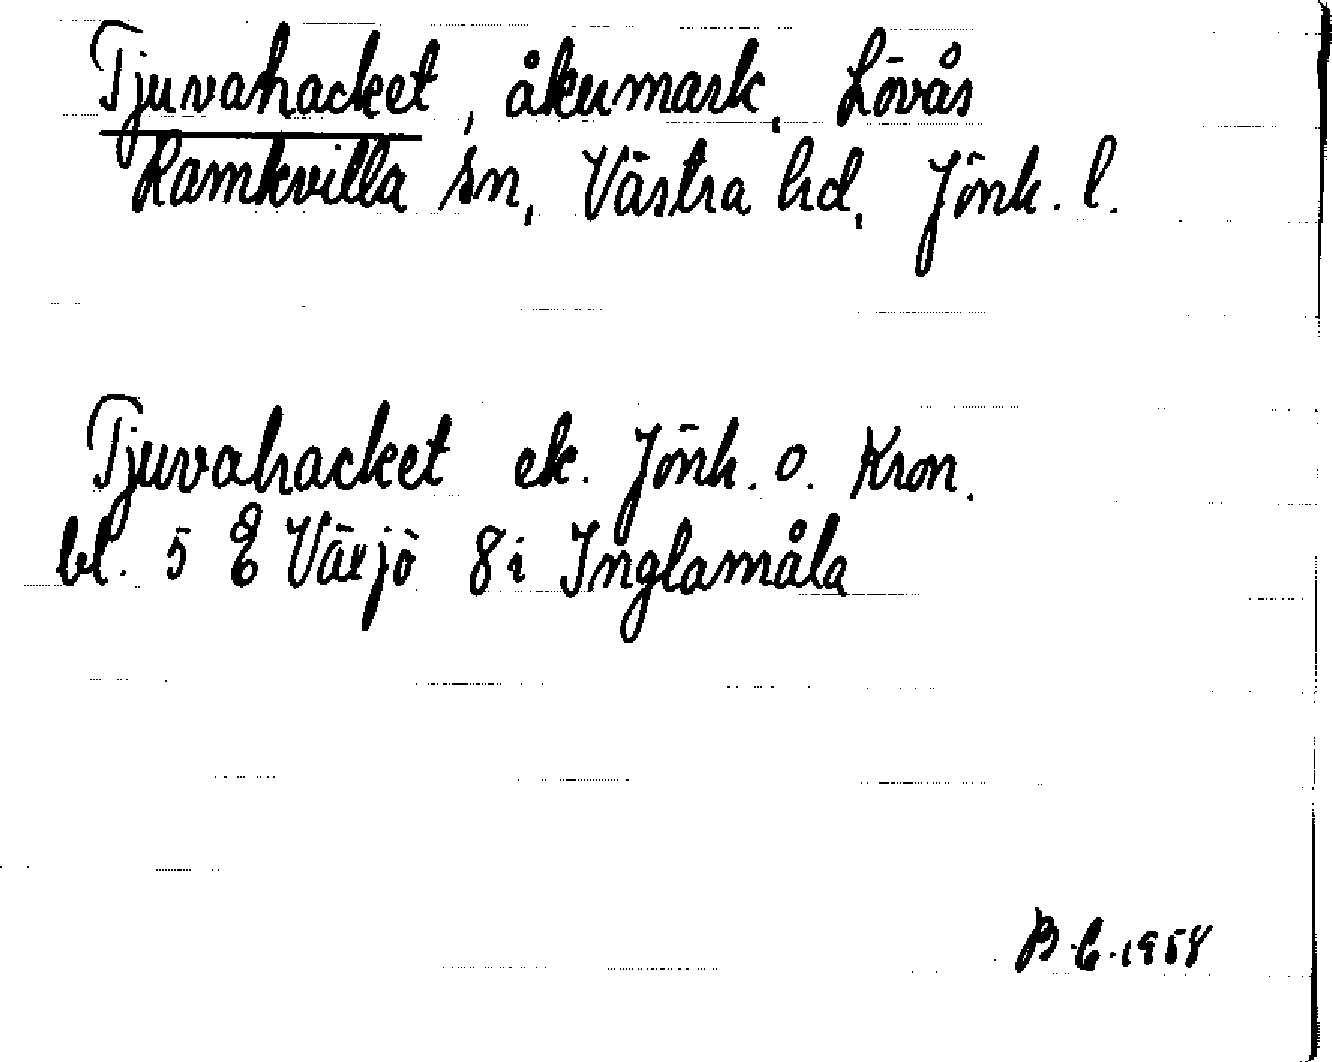 Tjuvahacket, åkermark, Lövås
Ramkvilla sn, Västra hd, Jönk. l.
Tjuvahacket ek. Jönk. o. Kron.
bl. 5 E Växjö 8 i Inglamåla
1958